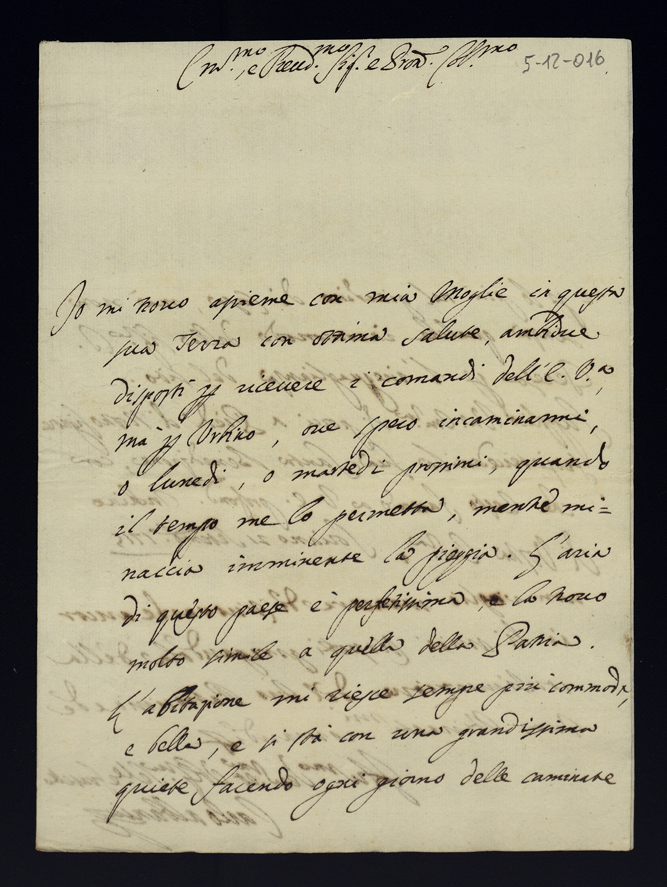 Em.mo, e Reud.mo Sig.r e Pron. Col.mo
5-12-016
Io mi trouo assieme con mia Moglie in questa
sua Terra con ottima salute, ambidue
disposti p riceuere i comandi dell' E. V.a,
mà p Urbino, oue spero incaminarmi,
o lunedi, o martedi prossimi, quando
il tempo me lo permetta, mentre mi=
naccia imminente la pioggia. L'aria
di questo paese è perfettissima, e la trouo
molto simile a quella della Patria.
L'abitazione mi riesce sempre più commoda,
e bella, e si stà con una grandissima
quiete facendo ogni giorno delle caminate